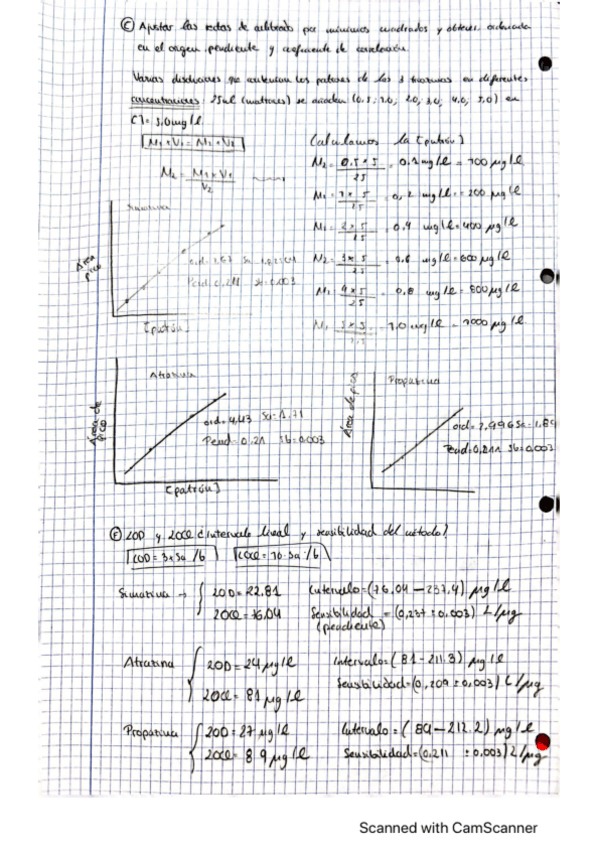 C Ajustar las rectas de calibrado por mínimos cuadrados y obtener ordenada
en el origen, pendiente y coeficiente de correlación.
Varias disoluciones que contenían los patrones de las 3 triazinas en diferentes
concentraciones: 25ml (matraces) se añaden (0.5; 1.0; 2.0; 3.0; 4.0; 5.0) en
C1 = 5.0mg/l
M1 × V1 = M2 × V2
Calculamos la [patrón]
M2 = M1 × V1 / V2
M2 = 0.5 × 5 / 25 = 0.1 mg/l = 100 µg/l
1 × 5 / 25 = 0,2 mg/l = 200 µg/l
2 × 5 / 25 = 0.4 mg/l = 400 µg/l
3 × 5 / 25 = 0.6 mg/l = 600 µg/l
4 × 5 / 25 = 0.8 mg/l = 800 µg/l
5 × 5 = 1.0 mg/l = 1000 µg/l
Simatina
Área pico
Sb=0.003
[patrón]
Atratina
Área de pico
ord= 4,43 Sa=1,71
Pend= 0,21 Sb=0.003
[patrón]
Propatina
Área de pico
ord= 2,996 Sa= 1.89
Pend=0,211 Sb=0.003
E LOD y LOQ ¿intervalo lineal y sensibilidad del método?
LOD = 3×Sa/b LOQ = 10·Sa/b
Simatina → LOD= 22.81 Intervalo=(76,04 – 237,4) µg/l
LOQ= 76.04 Sensibilidad = (0,237 ± 0.003) L/µg
(pendiente)
Atratina LOD = 24 µg/l Intervalo=( 81 - 211.3) µg/l
LOQ= 81 µg/l Sensibilidad=(0,209 ± 0,003) L/µg
Propatina LOD = 27 µg/l Intervalo = ( 89 – 212.2) µg/l
LOQ= 89 µg/l Sensibilidad=(0,211 ± 0.003) L/µg
Scanned with CamScanner